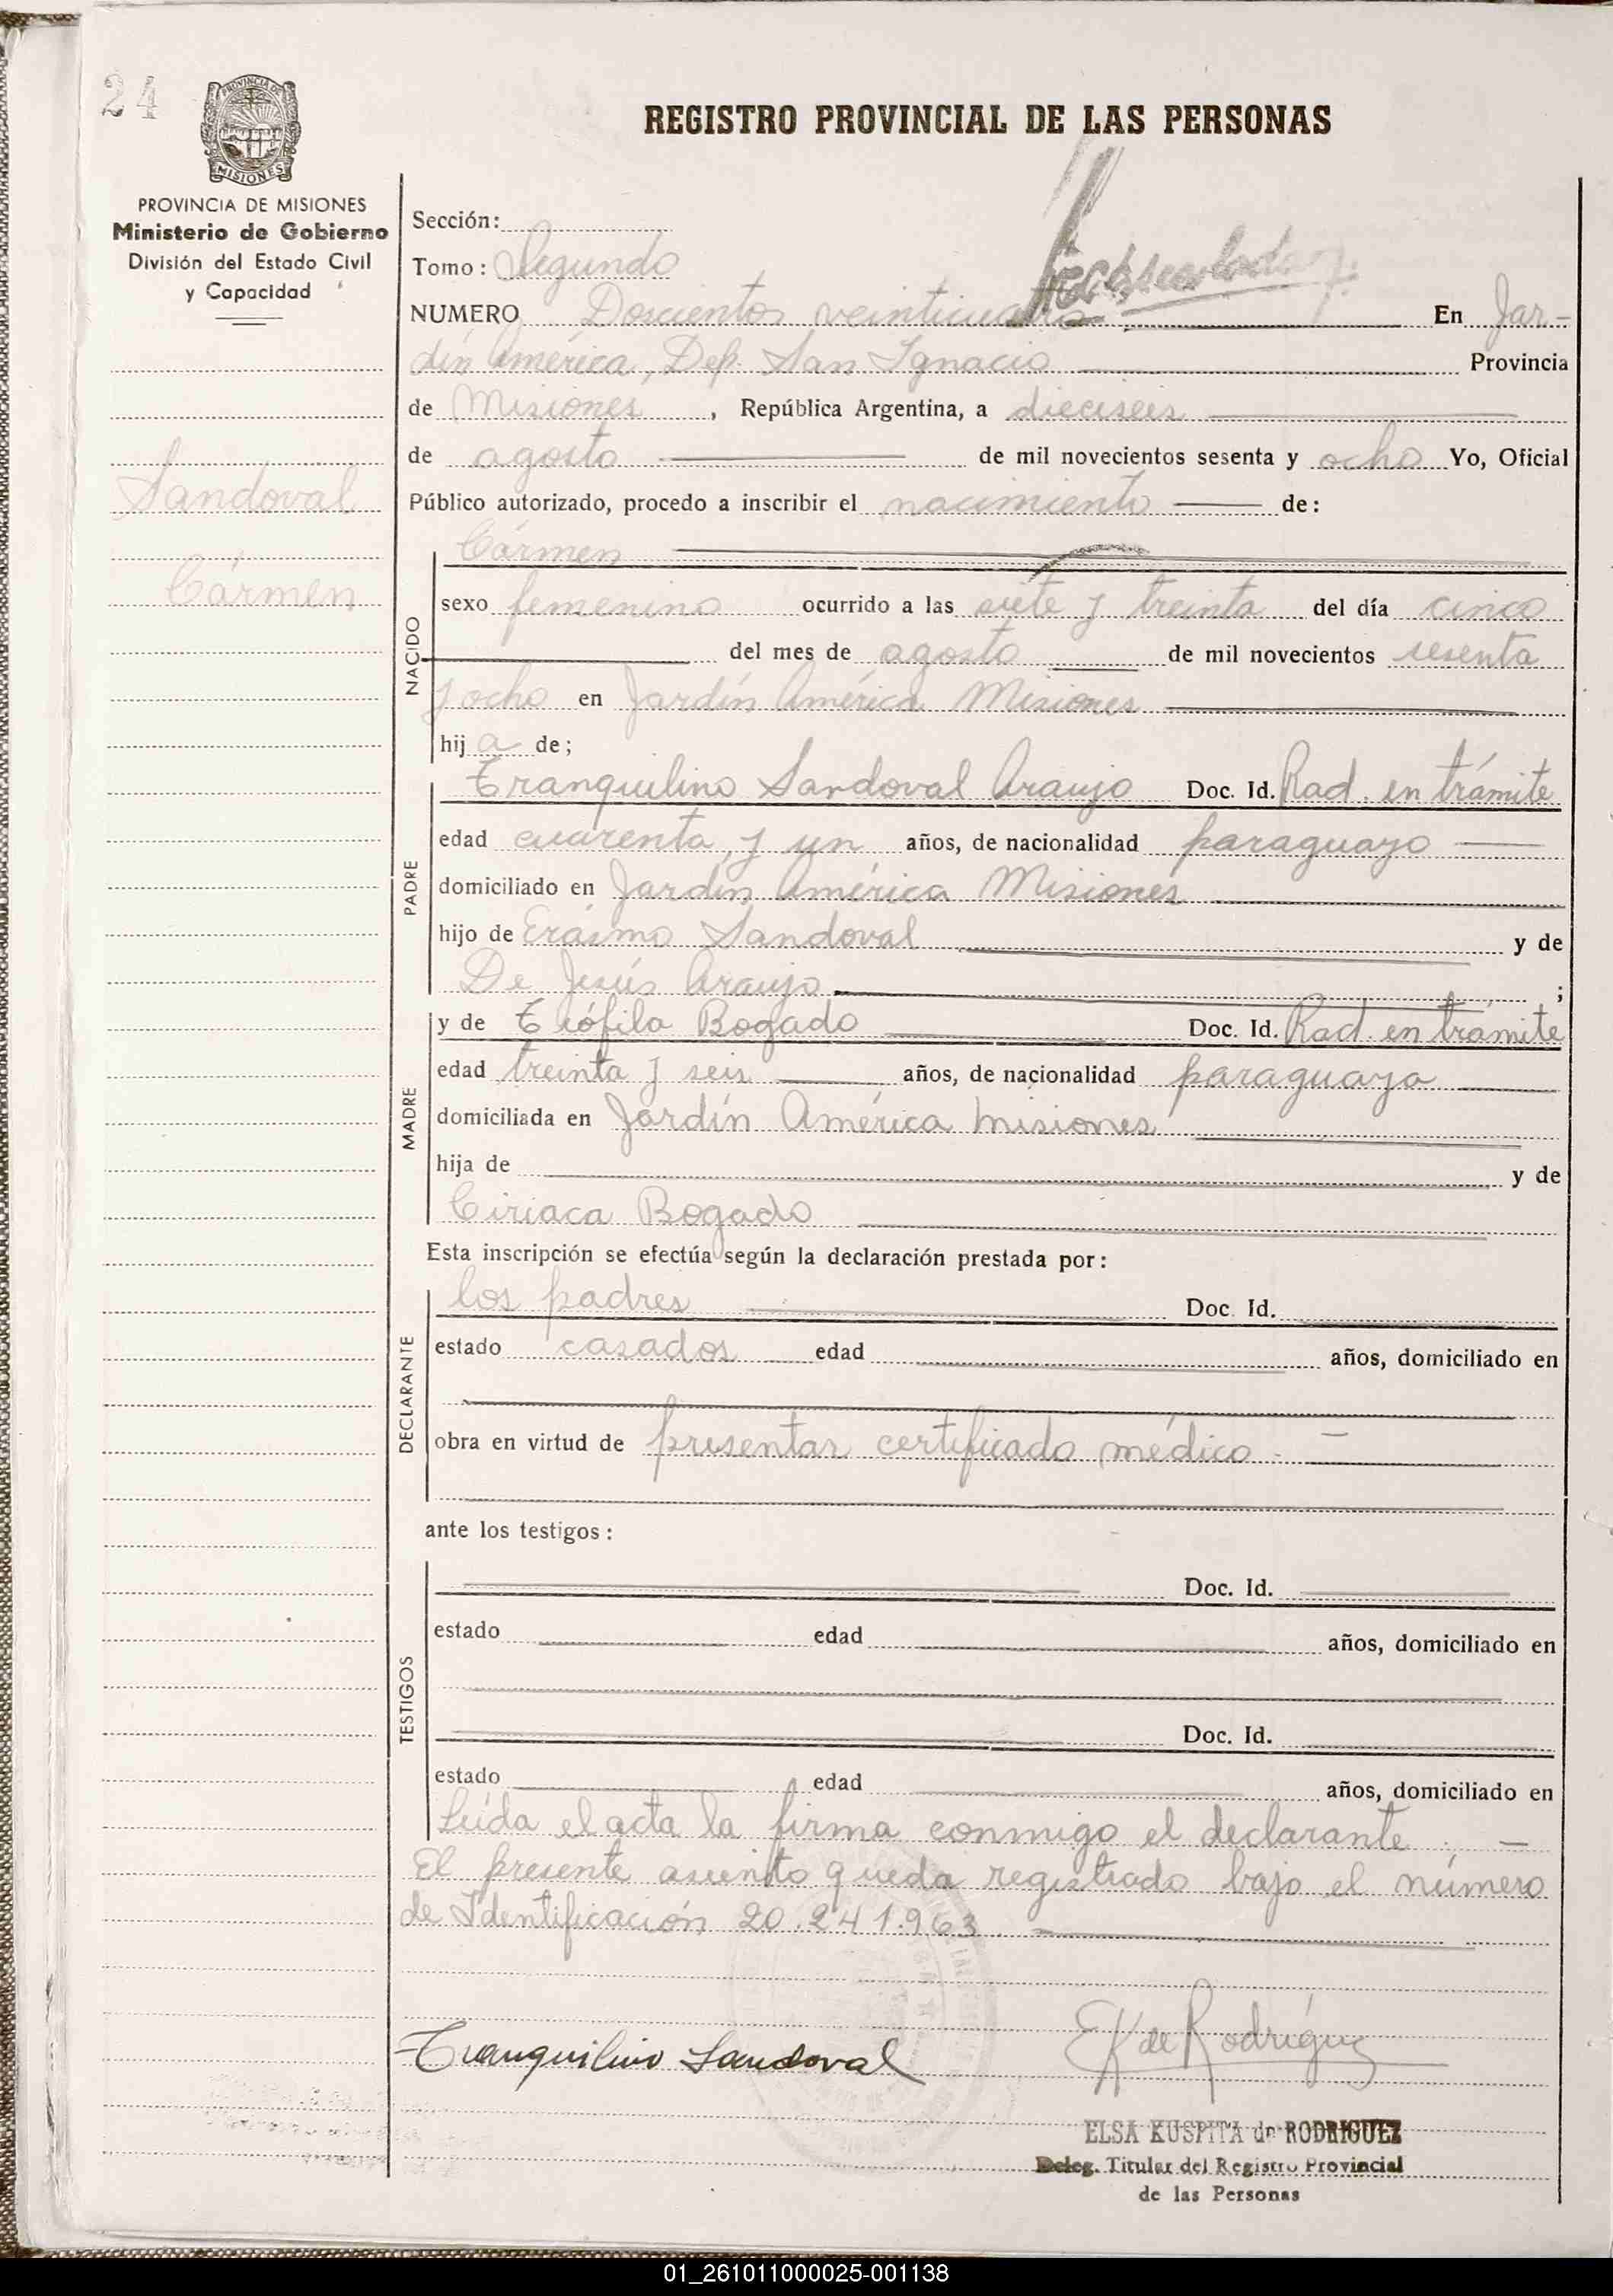 24
PROVINCIA DE
MISIONES
PROVINCIA DE MISIONES
Ministerio de Gobierno
División del Estado Civil
y Capacidad
Sandoval
Cármen
REGISTRO PROVINCIAL DE LAS PERSONAS
Sección:
Tomo: Segundo
NUMERO Doscientos veinticuatro En Jar-
dín América, Dep. San Ignacio Provincia
de Misiones, República Argentina, a dieciseis
de agosto de mil novecientos sesenta y ocho Yo, Oficial
Público autorizado, procedo a inscribir el nacimiento de:
NACIDO
Cármen
sexo femenino ocurrido a las siete y treinta del día cinco
del mes de agosto de mil novecientos sesenta
y ocho en Jardín América Misiones
hija de;
PADRE
Tranquilino Sandoval Araujo Doc. Id. Rad. en trámite
edad cuarenta y un años, de nacionalidad paraguayo
domiciliado en Jardín América Misiones
hijo de Erásmo Sandoval y de
De Jesús Araujo ;
MADRE
y de Teófila Bogado Doc. Id. Rad. en trámite
edad treinta y seis años, de nacionalidad paraguaya
domiciliada en Jardín América Misiones
hija de y de
Ciriaca Bogado
Esta inscripción se efectúa según la declaración prestada por:
DECLARANTE
los padres Doc. Id.
estado casados edad años, domiciliado en
obra en virtud de presentar certificado médico.-
ante los testigos:
TESTIGOS
Doc. Id.
estado edad años, domiciliado en
Doc. Id.
estado edad años, domiciliado en
Leída el acta la firma conmigo el declarante.
El presente asiento queda registrado bajo el número
de Identificación 20.241.963.
Tranquilino Sandoval
EK de Rodríguez
ELSA KUSPITA de RODRIGUEZ
Deleg. Titular del Registro Provincial
de las Personas
01_261011000025-001138